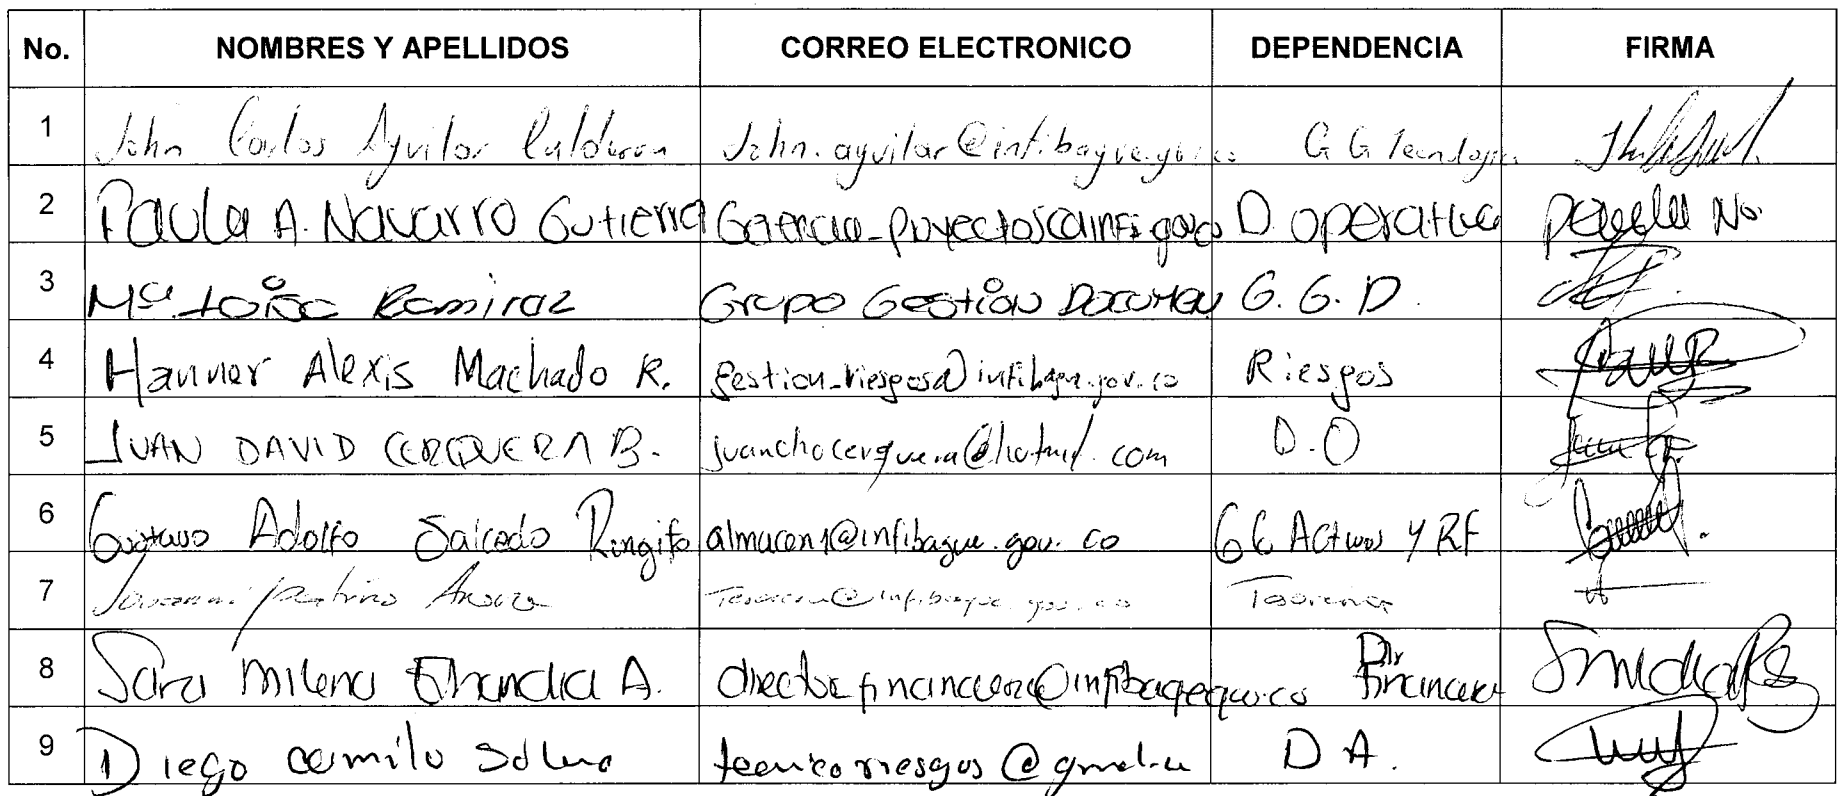 No. NOMBRES Y APELLIDOS CORREO ELECTRONICO DEPENDENCIA FIRMA
1 John Carlos Aguilar Calderon John.aguilar@infibague.gov.co G G Tecnologia
2 Paula A. Navarro Gutierrez Gerencia_proyectos@infi.gov.co D. operativa Paula Na.
3 Mª Ramirez Grupo Gestión Documen G. G. D.
4 Hanner Alexis Machado R. gestion_riesgos@infibague.gov.co Riesgos
5 JUAN DAVID CERQUERA B. juanchocerquera@hotmail.com D.O
6 Gustavo Adolfo Salcedo Rengifo almacen1@infibague.gov.co GG Activos y RF
7 Patiño Tesoreria@infibague.gov.co Tesoreria
8 Sara Milena A. directorfinanciera@infibague.gov.co Dir Financiera
9 Diego Camilo tecnicoriesgos@ D A.